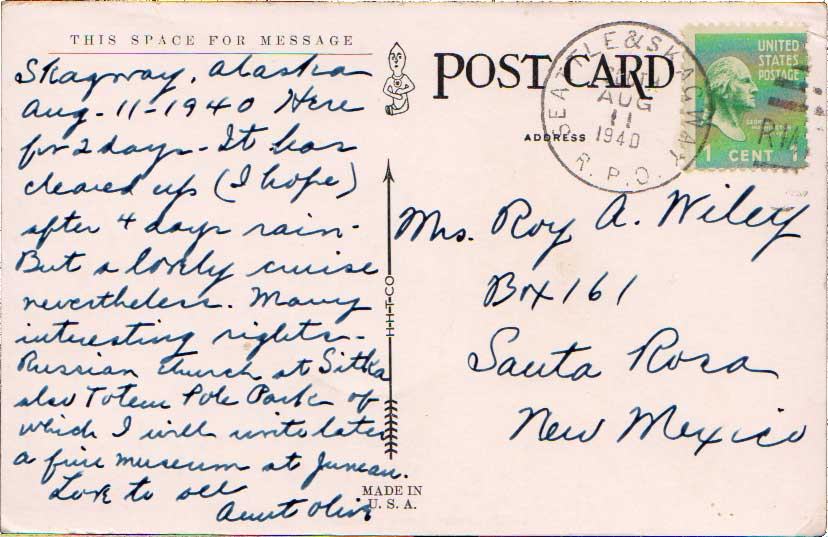 THIS SPACE FOR MESSAGE
Skagway, Alaska
Aug-11-1940 Here
for 2 days - It has
cleared up (I hope)
after 4 days rain -
But a lovely cruise
nevertheless. Many
interesting sights -
Russian church at Sitka
also Totem Pole Park of
which I will write later
a fine museum at Juneau.
Love to all
Aunt Olive
H-H-T-CO
MADE IN
U. S. A.
POST CARD
ADDRESS
SEATTLE & SKAGWAY
AUG
11
1940
R.P.O.
UNITED
STATES
POSTAGE
1 CENT 1
Mrs. Roy A. Wiley
Box 161
Santa Rosa
New Mexico